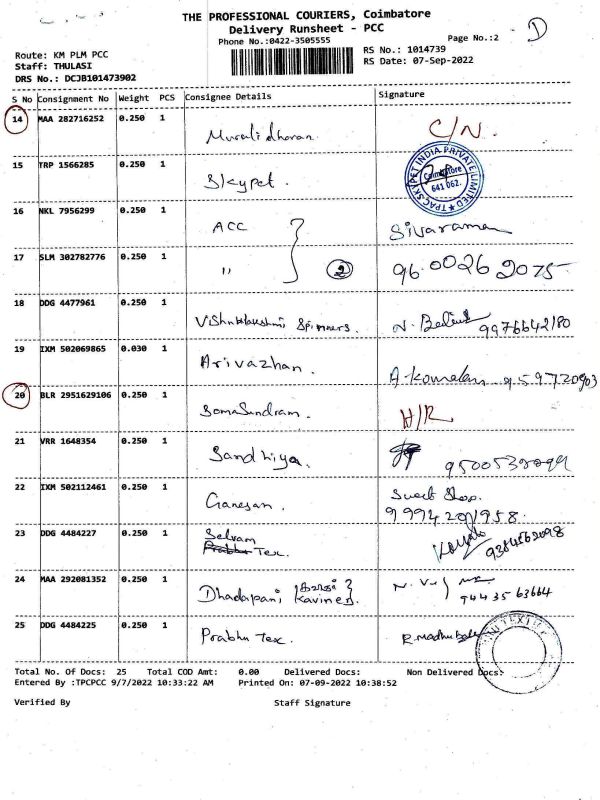 THE PROFESSIONAL COURIERS, Coimbatore
Delivery Runsheet - PCC
Phone No.:0422-3505555
Page No.:2
D
Route: KM PLM PCC
Staff: THULASI
DRS No.: DCJB101473902
RS No.: 1014739
RS Date: 07-Sep-2022
S No Consignment No Weight PCS Consignee Details Signature
14 MAA 282716252 0.250 1 Muralidharan C/N.
15 TRP 1566285 0.250 1 Skypet.
TPAC SKYPET INDIA PRIVATE LIMITED
Coimbatore
641 062.
16 NKL 7956299 0.250 1 ACC Sivaraman
17 SLM 302782776 0.250 1 " 2 96 00262 2075
18 DDG 4477961 0.250 1 Spinners. N. 9976642180
19 IXM 502069865 0.030 1 Arivazhan. A. 9597720903
20 BLR 2951629106 0.250 1 SomaSundram. H/R
21 VRR 1648354 0.250 1 Sandhiya.
22 IXM 502112461 0.250 1 Ganesan.
23 DDG 4484227 0.250 1 Selvam
Prabhu Tex.
24 MAA 292081352 0.250 1 Dhadapani 94435 63664
25 DDG 4484225 0.250 1 Prabhu Tex. R.
Total No. Of Docs: 25 Total COD Amt: 0.00 Delivered Docs: Non Delivered Docs:
Entered By :TPCPCC 9/7/2022 10:33:22 AM Printed On: 07-09-2022 10:38:52
Verified By Staff Signature